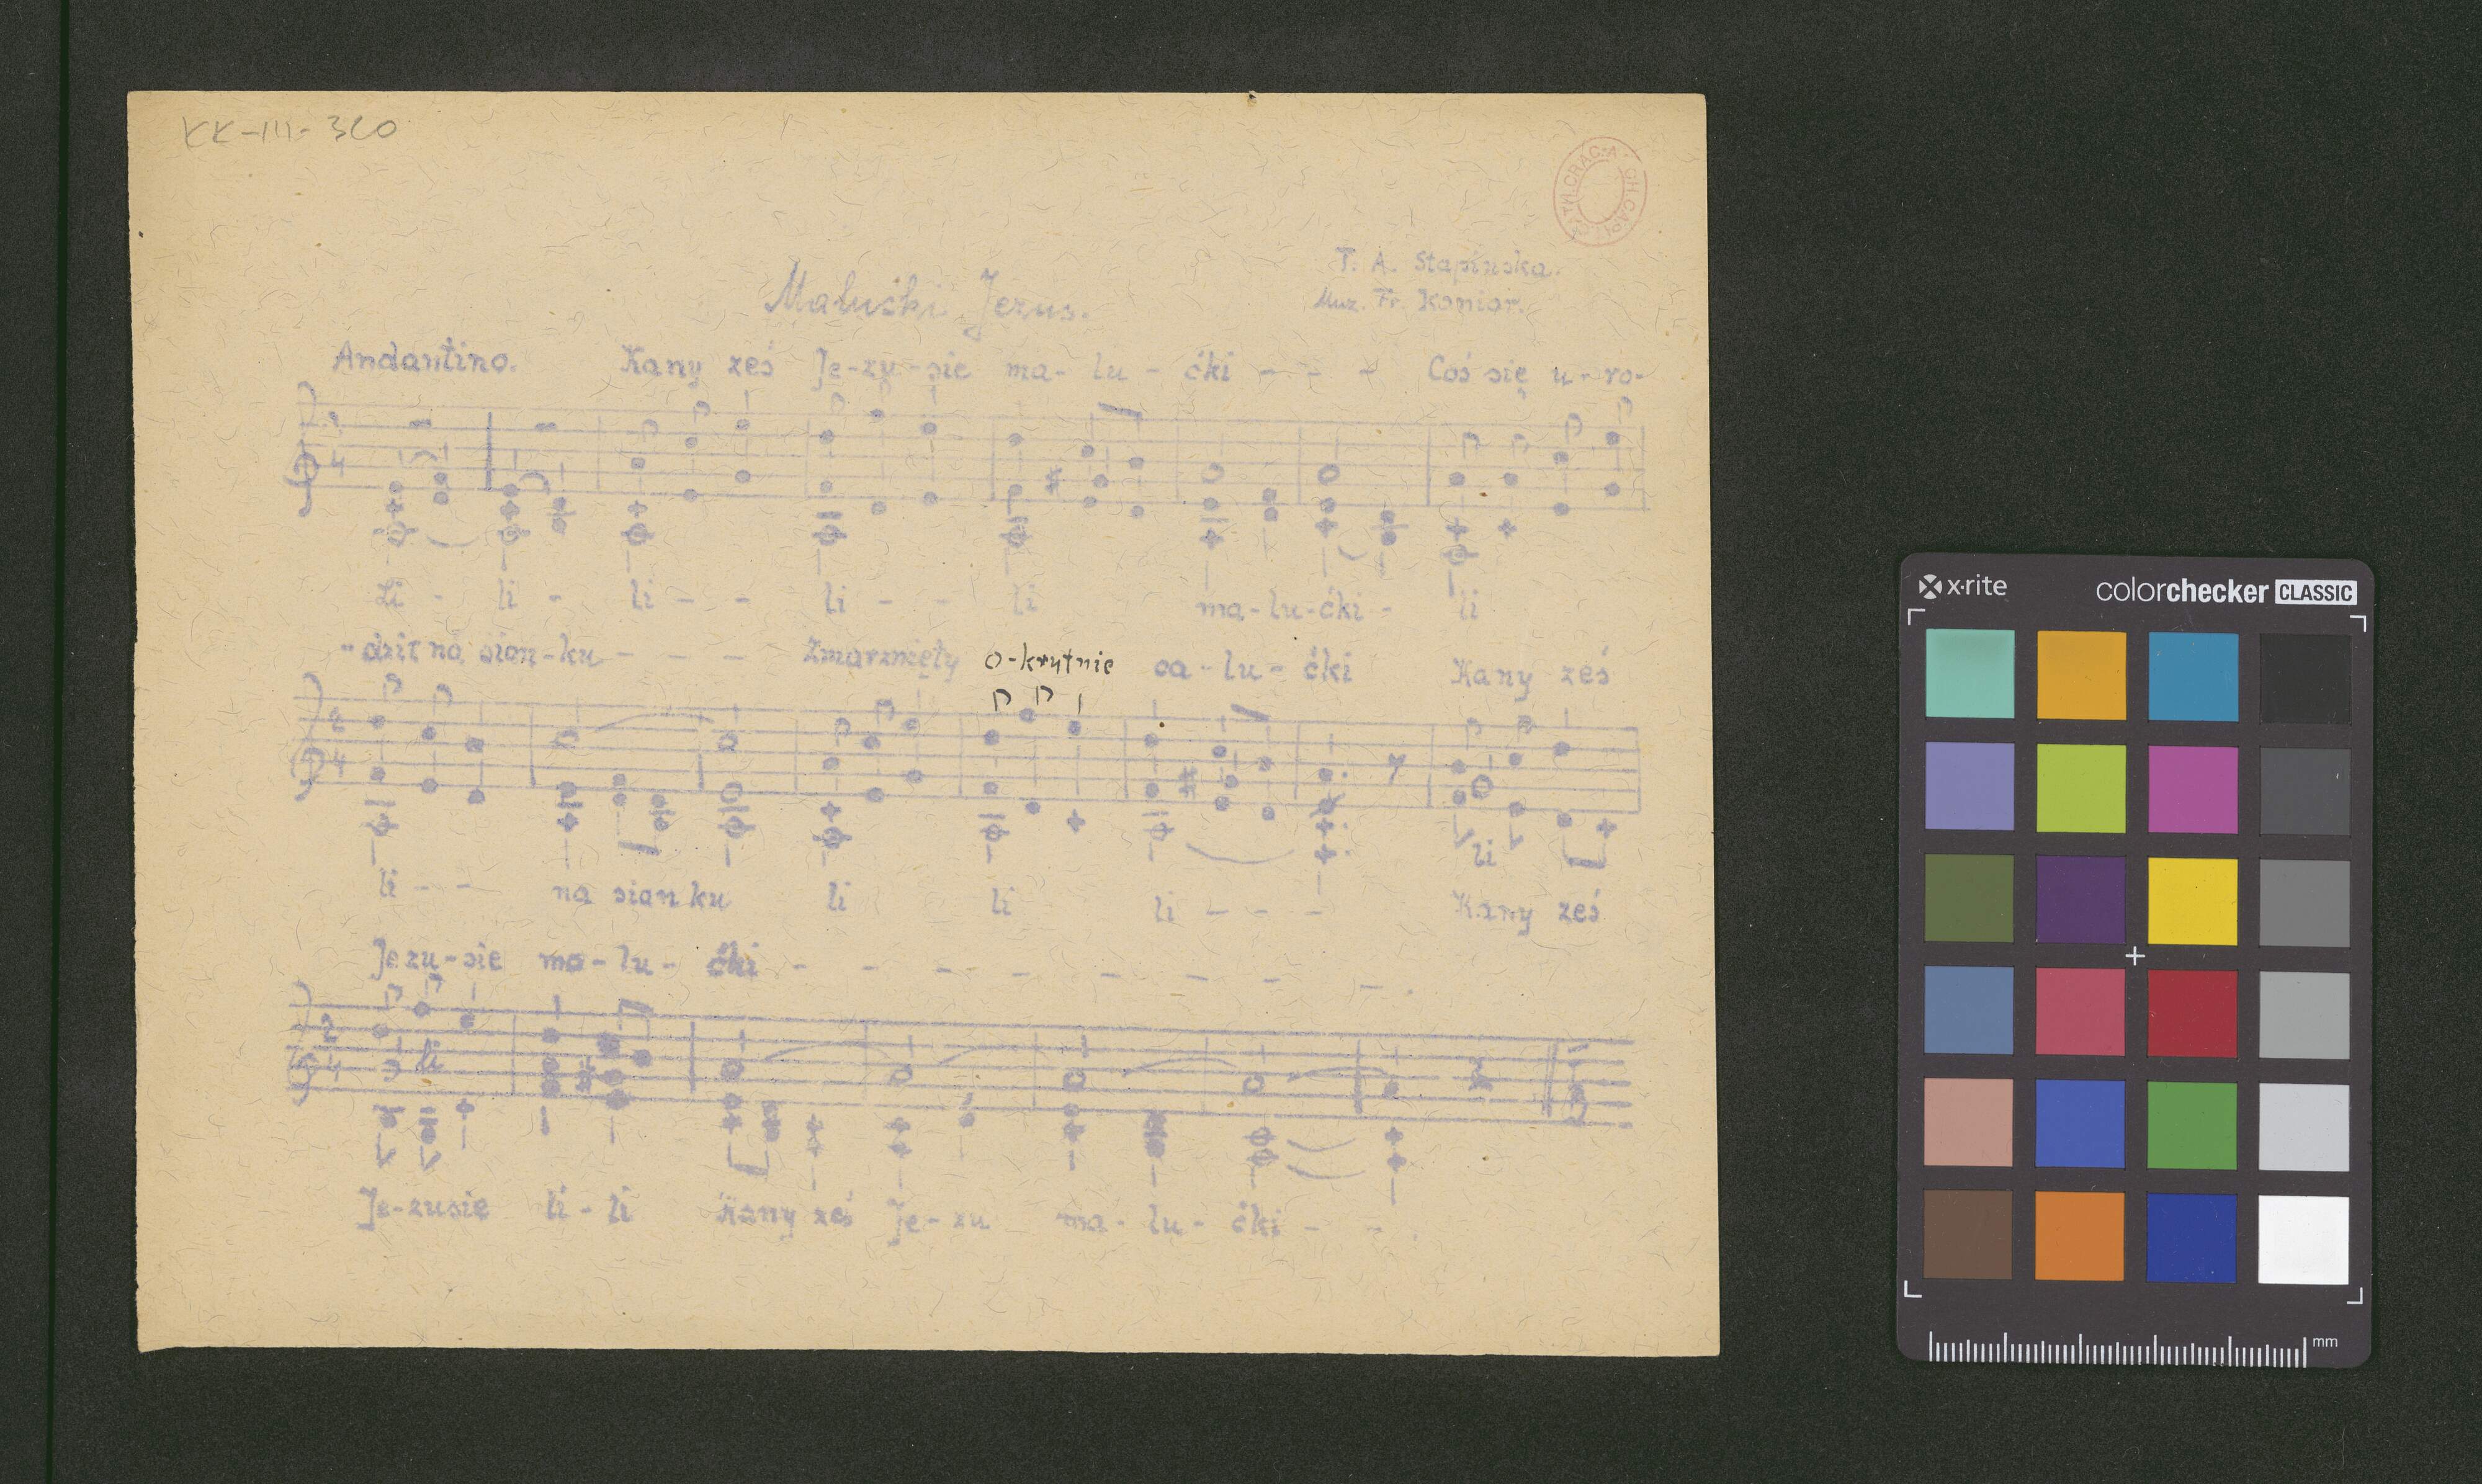 KK-III-320
T. A. Stapinska.
Muz. Fr. Komior.
Maluśki Jezus.
Andantino. Kany ześ Je-zu-sie ma-lu-ćki - - - Coś się u-ro-
2 4
Li - li - li - - li - - li ma-lu-ćki - li
-dził na sian-ku - - - Zmarznięty o-krutnie ca-lu-ćki Kany ześ
2 4
li
li - - na sianku li li li - - - Kany ześ
Jezu-sie ma-lu-ćki - - - - - - - -.
2 4 li
Je-zusie li-li Kany ześ Je-zu ma-lu-ćki - -.
x·rite colorchecker CLASSIC
mm